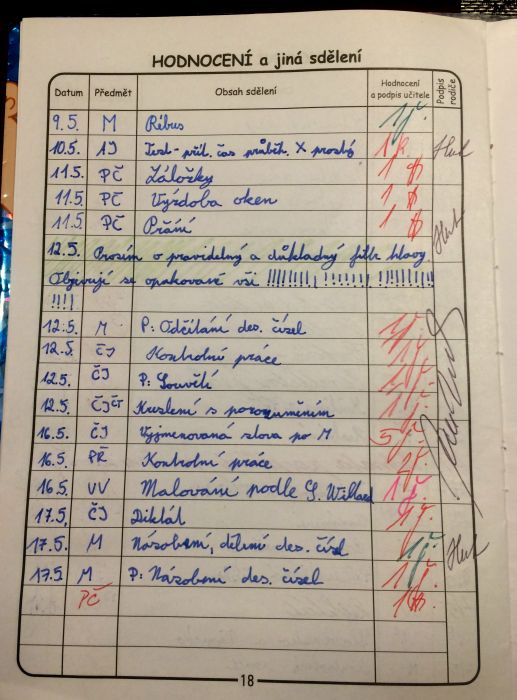 HODNOCENÍ a jiná sdělení
Datum Předmět Obsah sdělení Hodnocení a podpis učitele Podpis rodiče
9.5. M Rébus 1
10.5. AJ Test - přít. čas průběh. X prostý 1
11.5. PČ Záložky 1
11.5. PČ Výzdoba oken 1
11.5. PČ Přání 1
12.5. Prosím o pravidelný a důkladný filtr hlavy.
Objevují se opakovaně vši !!!!!!!!! !!!!!!! !!!!!!!!!!
!!!!
12.5. M P: Odčítání des. čísel
12.5. ČJ Kontrolní práce
12.5. ČJ P: Souvětí
12.5. ČJČT Kreslení s porozuměním 1
16.5. ČJ Vyjmenovaná slova po M 5
16.5. PŘ Kontrolní práce
16.5. VV Malování podle G. Willard 1
17.5. ČJ Diktát 1
17.5. M Násobení, dělení des. čísel 1
17.5. M P: Násobení des. čísel 1
PČ 1
18